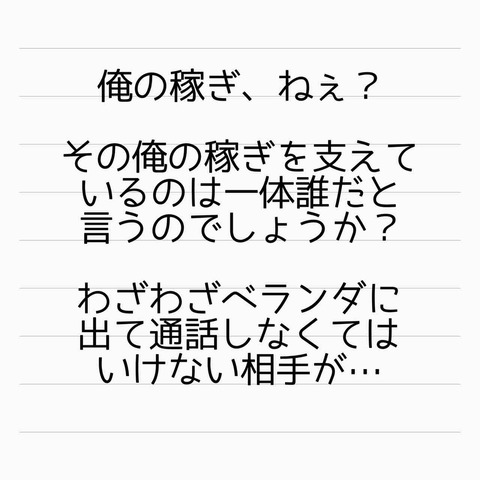 俺の稼ぎ、ねぇ？
その俺の稼ぎを支えて
いるのは一体誰だと
言うのでしょうか？
わざわざベランダに
出て通話しなくては
いけない相手が…